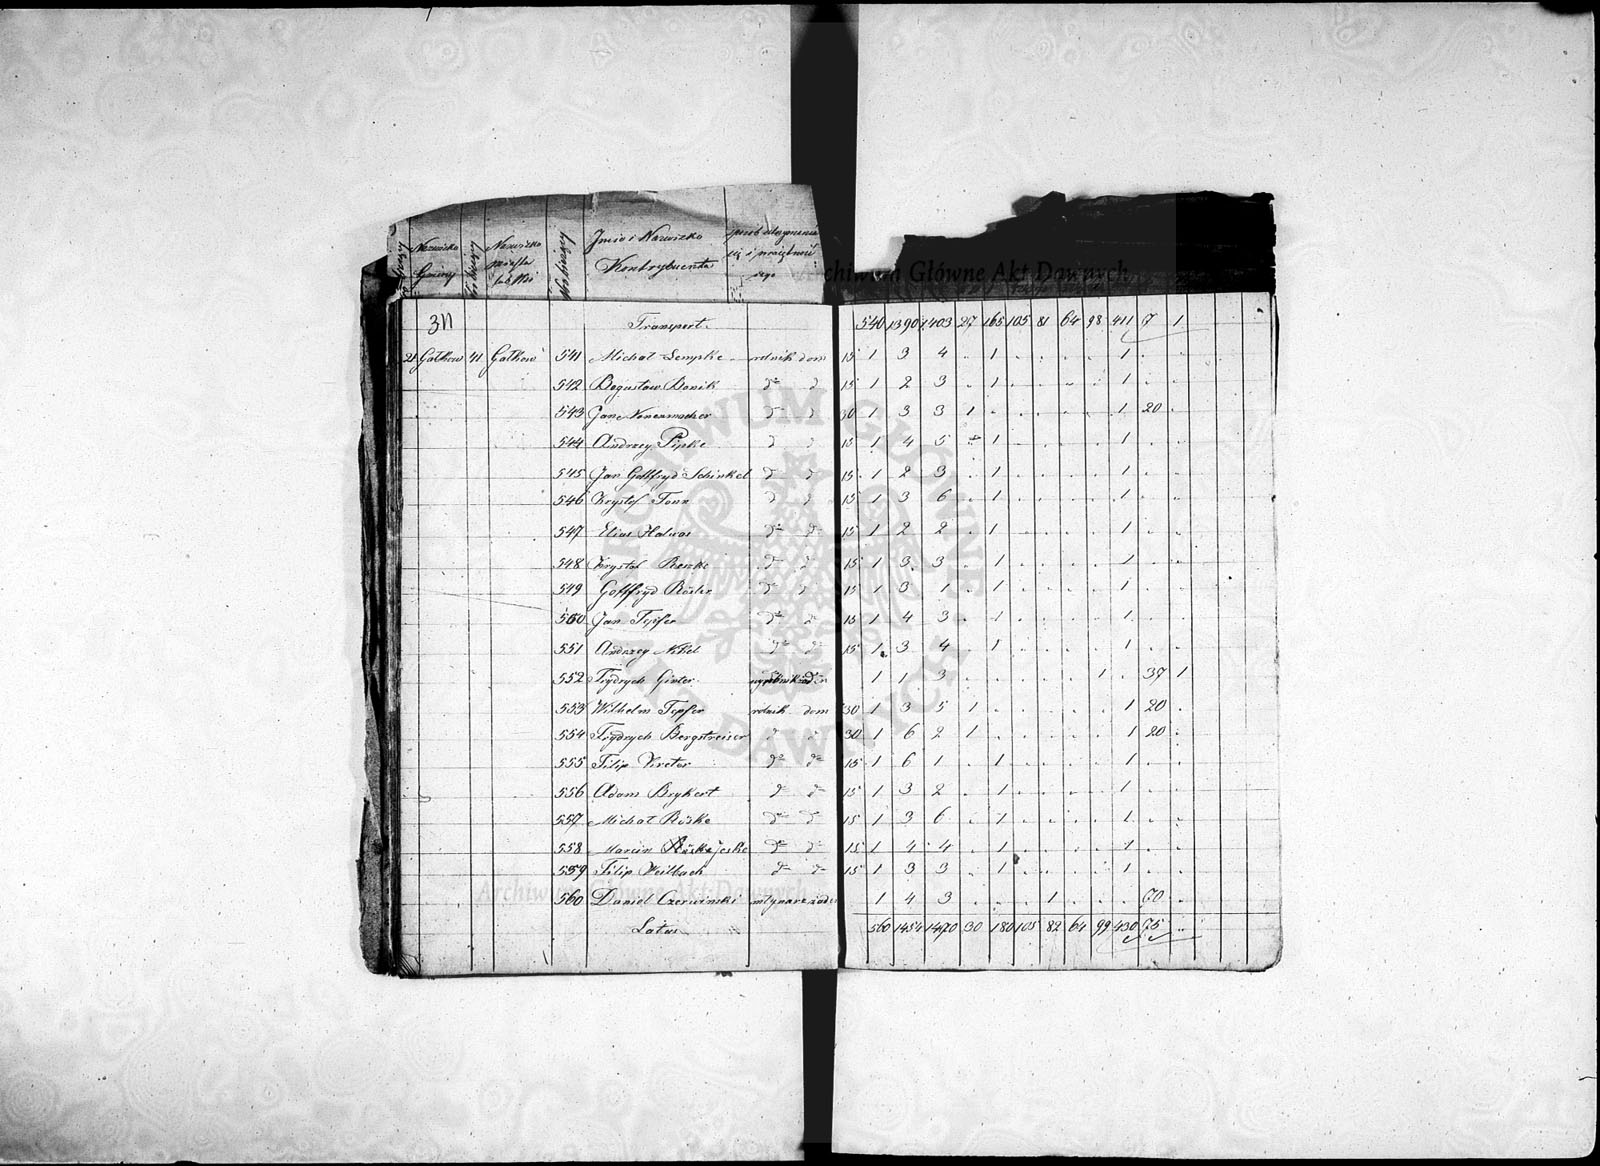 Nazwisko Gminy Nazwisko Imie i Nazwisko Kontrybuenta
Archiwum Główne Akt Dawnych
311 Transport 540 1390 1403 27 165 105 81 64 98 411 7 1
21 Gałkow 41 Gałkow 541 Michał Sempke rolnik dom 15 1 3 4 . 1 . . . . 1 . .
542 Bogusław Bonik do d 15 1 2 3 . 1 . . . . 1 . .
543 Jan Nonenmacher do d 30 1 3 3 1 . . . . . 1 20 .
544 Andrzey Pipke d d 15 1 4 5 . 1 . . . . 1 . .
545 Jan Gottfryd Schinkel d d 15 1 2 3 . 1 . . . . 1 . .
546 Krysztof Tonn d d 15 1 3 6 . 1 . . . . 1 . .
547 Elias Halwas do do 15 1 2 2 . 1 . . . . 1 . .
548 Krysztof Reszke do d 15 1 3 3 . 1 . . . . 1 . .
549 Gottfryd Rösler do d 15 1 3 1 . 1 . . . . 1 . .
550 Jan Topfer do do 15 1 4 3 . 1 . . . . 1 . .
551 Andrzey Nikel do do 15 1 3 4 . 1 . . . . 1 . .
552 Frydrych Ginter 1 1 3 . . . . . 1 . 37 1
553 Wilhelm Topfer rolnik dom 30 1 3 5 1 . . . . . 1 20 .
554 Frydrych Bergstreiser d d 30 1 6 2 1 . . . . . 1 20 .
555 Filip Vireter do do 15 1 6 1 . 1 . . . . 1 . .
556 Adam Brykert do do 15 1 3 2 . 1 . . . . 1 . .
557 Michał Röske do do 15 1 3 6 . 1 . . . . 1 . .
558 Marcin Jeske do do 15 1 4 4 . 1 . . . . 1 . .
559 Filip Weilbach do do 15 1 3 3 . 1 . . . . 1 . .
Archiwum Główne Akt Dawnych
560 Daniel Czerwinski młynarz 1 4 3 . . . 1 . . . 70 .
Latus 560 1454 1470 30 180 105 82 64 99 430 75
ARCHIWUM GŁÓWNE AKT DAWNYCH